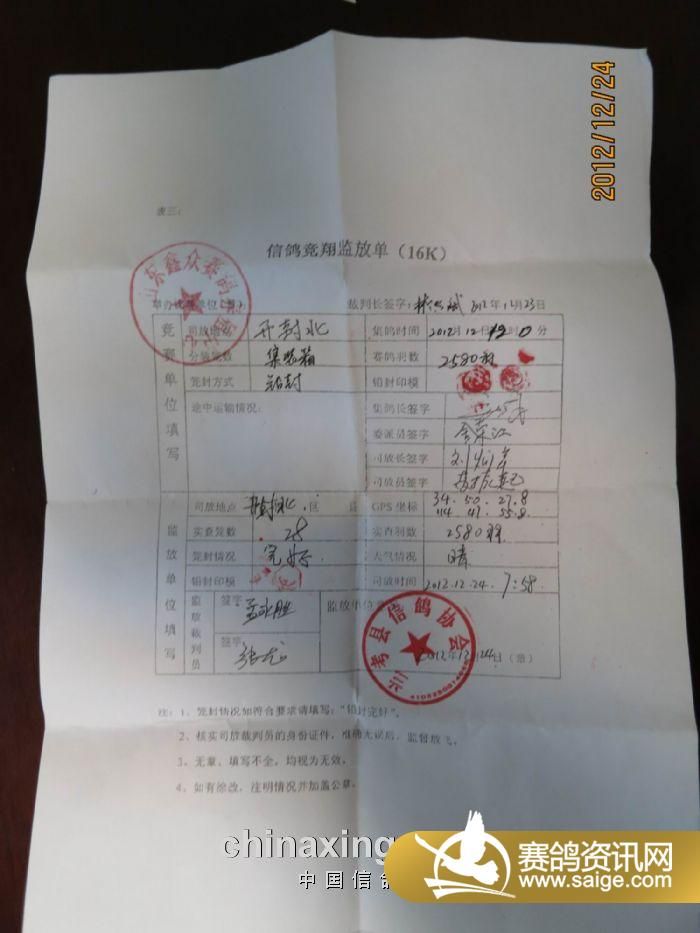 2012/12/24
表三:
信鸽竞翔监放单（16K）
裁判长签字: 2012年12月23日
竞赛单位填写
司放地点 开封北 集鸽时间 2012年12月 日 时0分
分装笼数 集装箱 赛鸽羽数 2580羽
笼封方式 铅封 铅封印模
途中运输情况: 集鸽长签字
委派员签字
司放长签字
司放员签字
监放单位填写
司放地点 区 GPS坐标 34.50.27.8
114.41.55.8
实查笼数 28 实查羽数 2580羽
笼封情况 完好 天气情况 晴
铅封印模 司放时间 2012.12.24. 7:58
监放裁判员 签字: 孟永胜 监放单位意
签字: 张龙
2012年12月24日（章）
兰考县信鸽协会
注: 1、笼封情况如符合要求请填写: "铅封完好"。
2、核实司放裁判员的身份证件, 准确无误后, 监督放飞。
3、无章、填写不全, 均视为无效。
4、如有涂改, 注明情况并加盖公章。
chinaxing
中国信鸽
赛鸽资讯网
www.saige.com